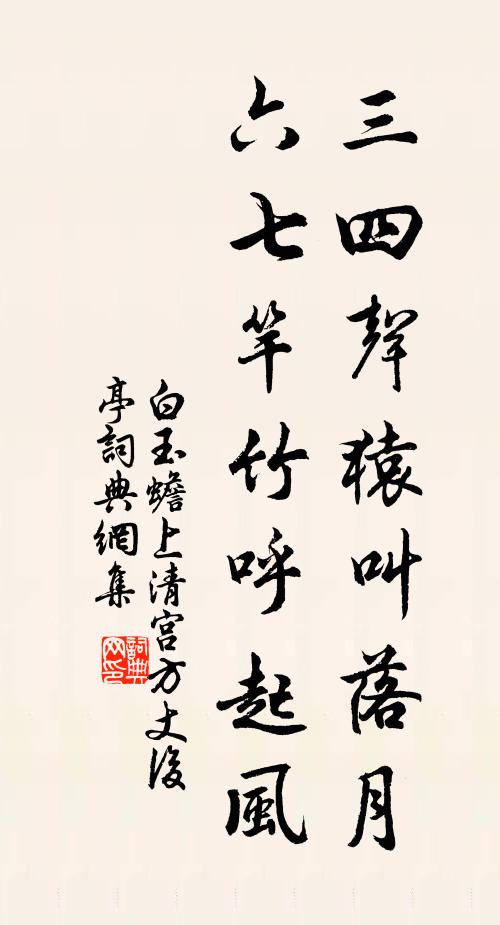 三四聲猿叫落月
六七竿竹呼起風
白玉蟾上清宮方丈後
亭詞典網集
詞典
网印